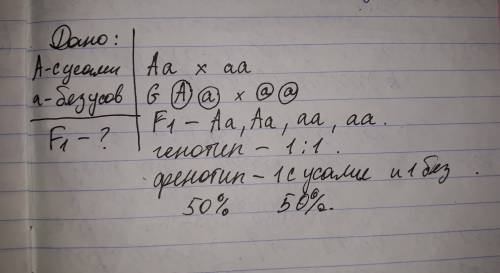 Дано:
А-с усами
а-без усов
F1 - ?
Аа х аа
G А а х а а
F1 - Аа, Аа, аа, аа.
генотип - 1:1.
фенотип - 1 с усами и 1 без.
50% 50%.